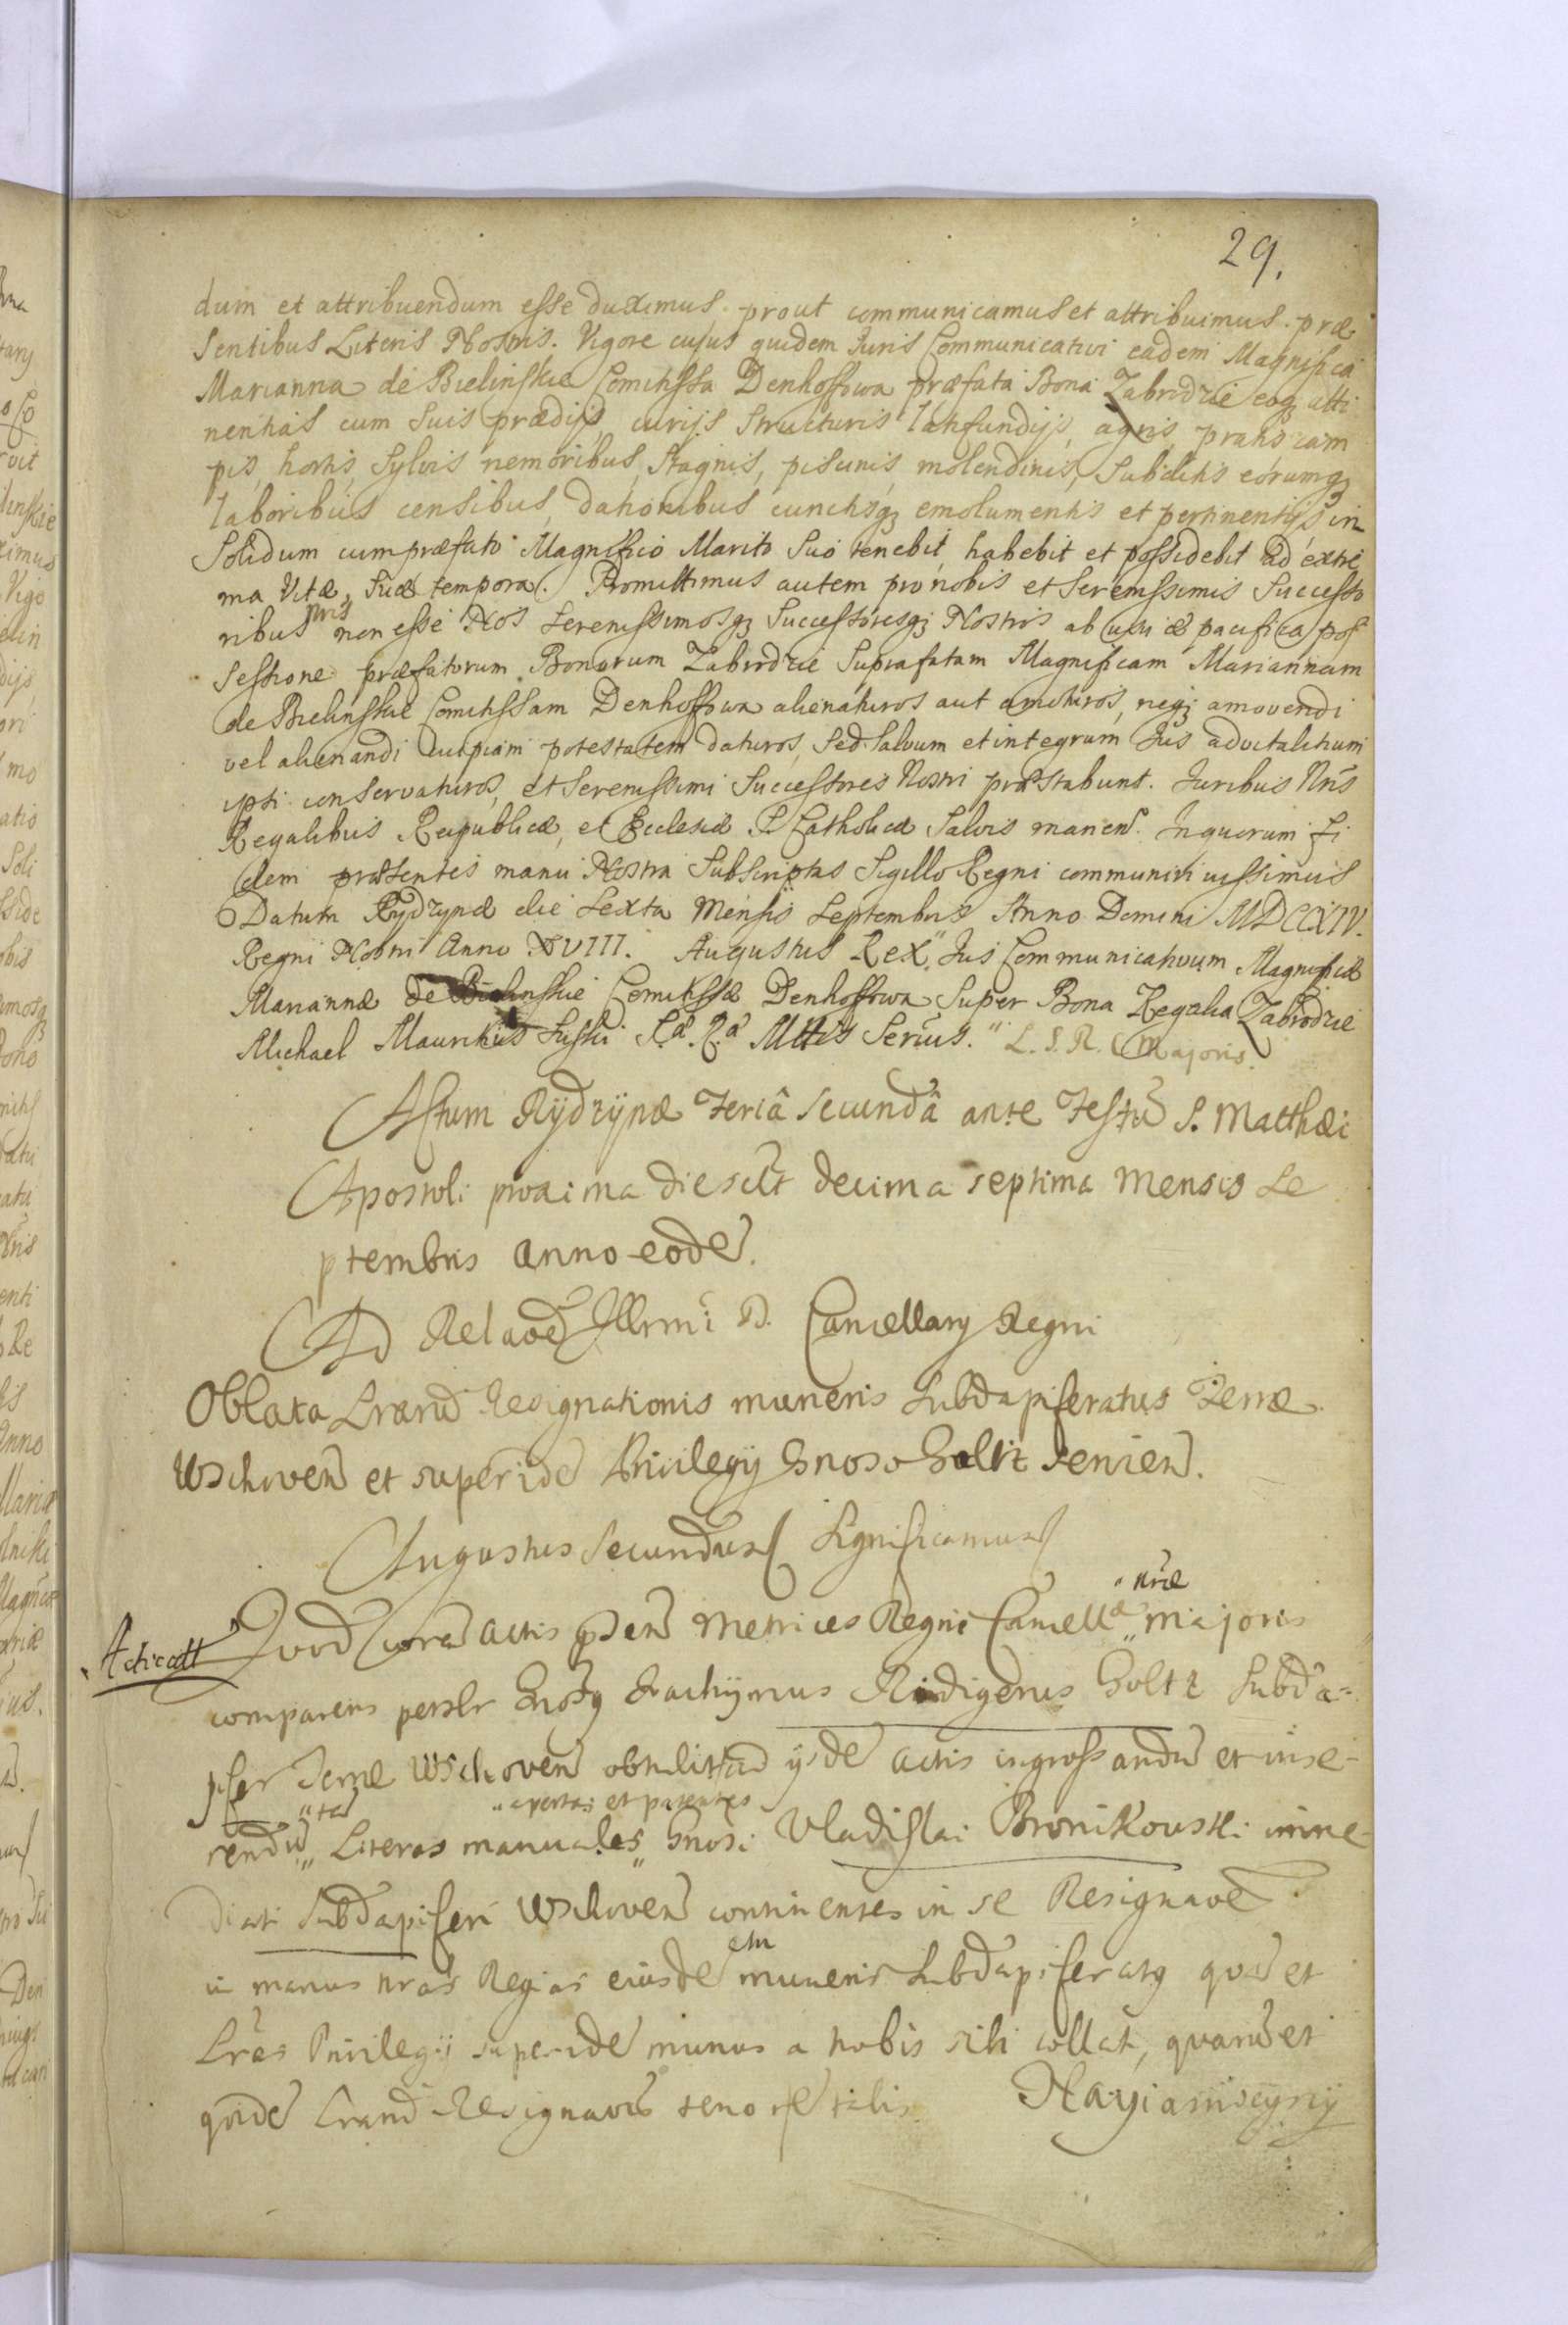 29.
dum et attribuendum esse duximus. prout communicamus et attribuimus. præ
sentibus Literis Nostris. Vigore cujus quidem Juris Communicativi eadem Magnifica
Marianna de Bielinskie Comitissa Denhoffowa præfata Bona Zabrodzie eoq; atti
nentias cum suis prædijs, curijs structuris latifundijs, agris, pratis cam
pis, hortis, sylvis nemoribus, stagnis, piscinis, molendinis, subditis eorumq;
laboribus censibus, dationibus cunctisq; emolumentis et pertinentijs in
solidum cum præfato Magnifico Marito suo tenebit, habebit et possidebit ad extre
ma Vitæ, suæ tempora. Promittimus autem pro nobis et Serenissimis Successo
ribus nris non esse Nos Serenissimosq; Successoresq; Nostros ab usu & pacifica pos
sessione præfatorum Bonorum Zabrodzie suprafatam Magnificam Mariannam
de Bielinskie Comitissam Denhoffowa alienaturos aut amoturos, neq; amovendi
vel alienandi cuipiam potestatem daturos, sed salvum et integrum Jus advitalitium
ipsi conservaturos, et Serenissimi Successores Nostri præstabunt. Juribus Nris
Regalibus Reipublicæ, et Ecclesiæ S. Catholicæ salvis manen. In quorum fi
dem præsentes manu Nostra subscriptas Sigillo Regni communiri jussimus
Datum Rydzynæ die sexta Mensis Septembris Anno Domini MDCCXIV.
Regni Nostri Anno XVIII. Augustus Rex. Jus Communicativum Magnificæ
Mariannæ de Bielinskie Comitissæ Denhoffowa, super Bona Regalia Zabrodzie
Michael Mauritius Suski S.æ R.æ Mttis Serius. L. S. R. Majoris.
Actum Rydzynæ Feria secunda ante Festu S. Matthæi
Apostoli proxima die scilt decima septima Mensis Se
ptembris anno eode.
Ad Relaoe Illrmi D. Cancellary Regni
Oblata Lrarū Resignationis muneris Subdapiferatus Terræ
Wschoven et super ide Privilegij Gnoso Goltz servien.
Augustus Secundus Significamus
Acticatt Quod cora actis pden Metrices Regni Cancellæ nræ Majoris
comparens persr Gnosq Joachymus Rüdigerus Goltz Subda-
pifer Terræ Wschoven obtulit ad ijsde actis ingrossandū et inse-
rendū Literas manuales apertas et patentes Gnosi Vladislai Bronikowski imme-
diati Subdapiferi Wschoven continentes in se Resignaoe
in manus nras Regias eiusde muneris Subdapiferatq quā et
Lras Privilegij super ide munus a nobis sibi collat, quarū et
qside Lrarū Resignaois tenor e talis Nayiasnieyszy